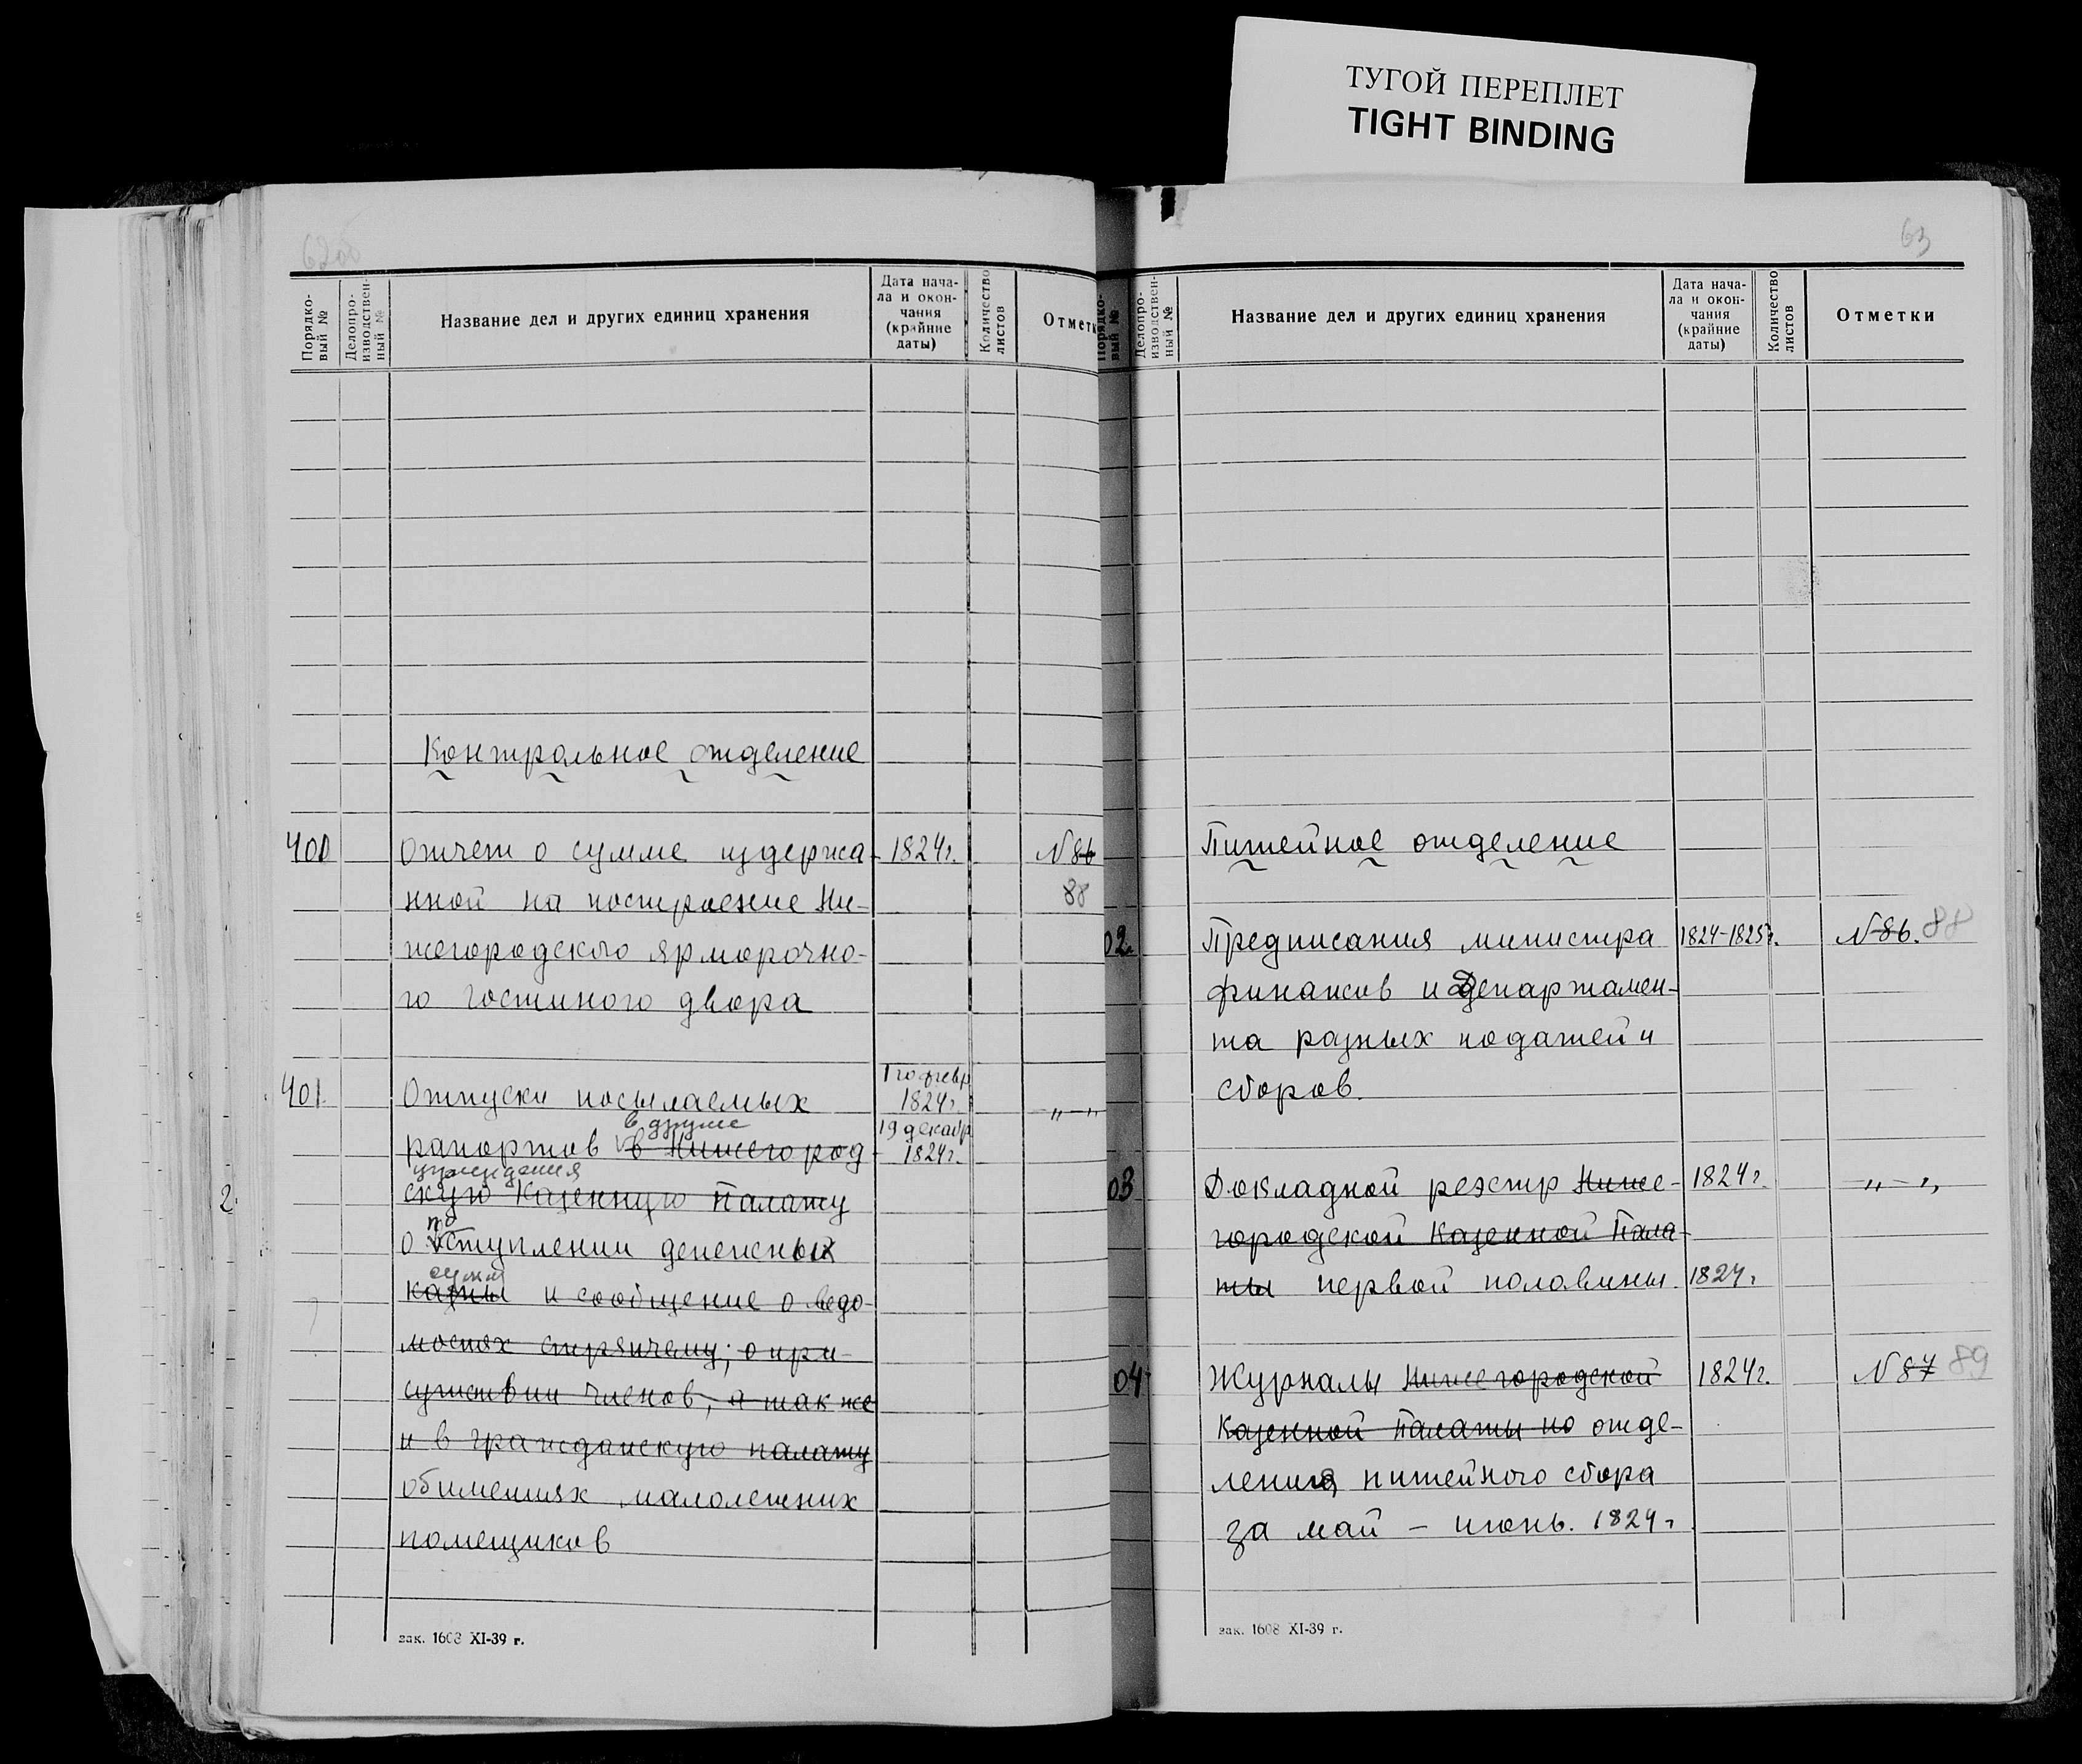 ТУГОЙ ПЕРЕПЛЕТ
TIGHT BINDING
62об
Порядко-
вый №
Делопро-
изводствен-
ный №
Название дел и других единиц хранения
Дата нача-
ла и окон-
чания
(крайние
даты)
Количество
листов
Отметк
Контрольное отделение
400 Отчет о сумме издержа- 1824г. N86
нной на построение Ни- 88
жегородского ярморочно-
го гостиного двора
1824г.
401. Отпуски посылаемых „ — „
19 декабр
1824г.
в другие
рапортов в Нижегород-
учреждения
скую Казенную Палату
2.
по
о поступлении денежных
сумм
казны и сообщение о ведо-
мостях стряпчему; о при-
сутствии членов, а так же
и в гражданскую палату
об имениях малолетних
помещиков
зак. 1608 XI-39 г.
63
Порядко-
вый №
Делопро-
изводствен-
ный №
Название дел и других единиц хранения
Дата нача-
ла и окон-
чания
(крайние
даты)
Количество
листов
Отметки
Питейное отделение
02. Предписания министра 1824-1825г. N86. 88
финансов и Департамен-
та разных податей и
сборов.
03 Докладной реэстр Ниже- 1824г. „ — „
городской Казенной Пала-
ты первой половины 1824г.
04 Журналы Нижегородской 1824г. N87 89
Казенной Палаты по отде-
ления питейного сбора
за май – июнь. 1824г.
зак. 1608 XI-39 г.